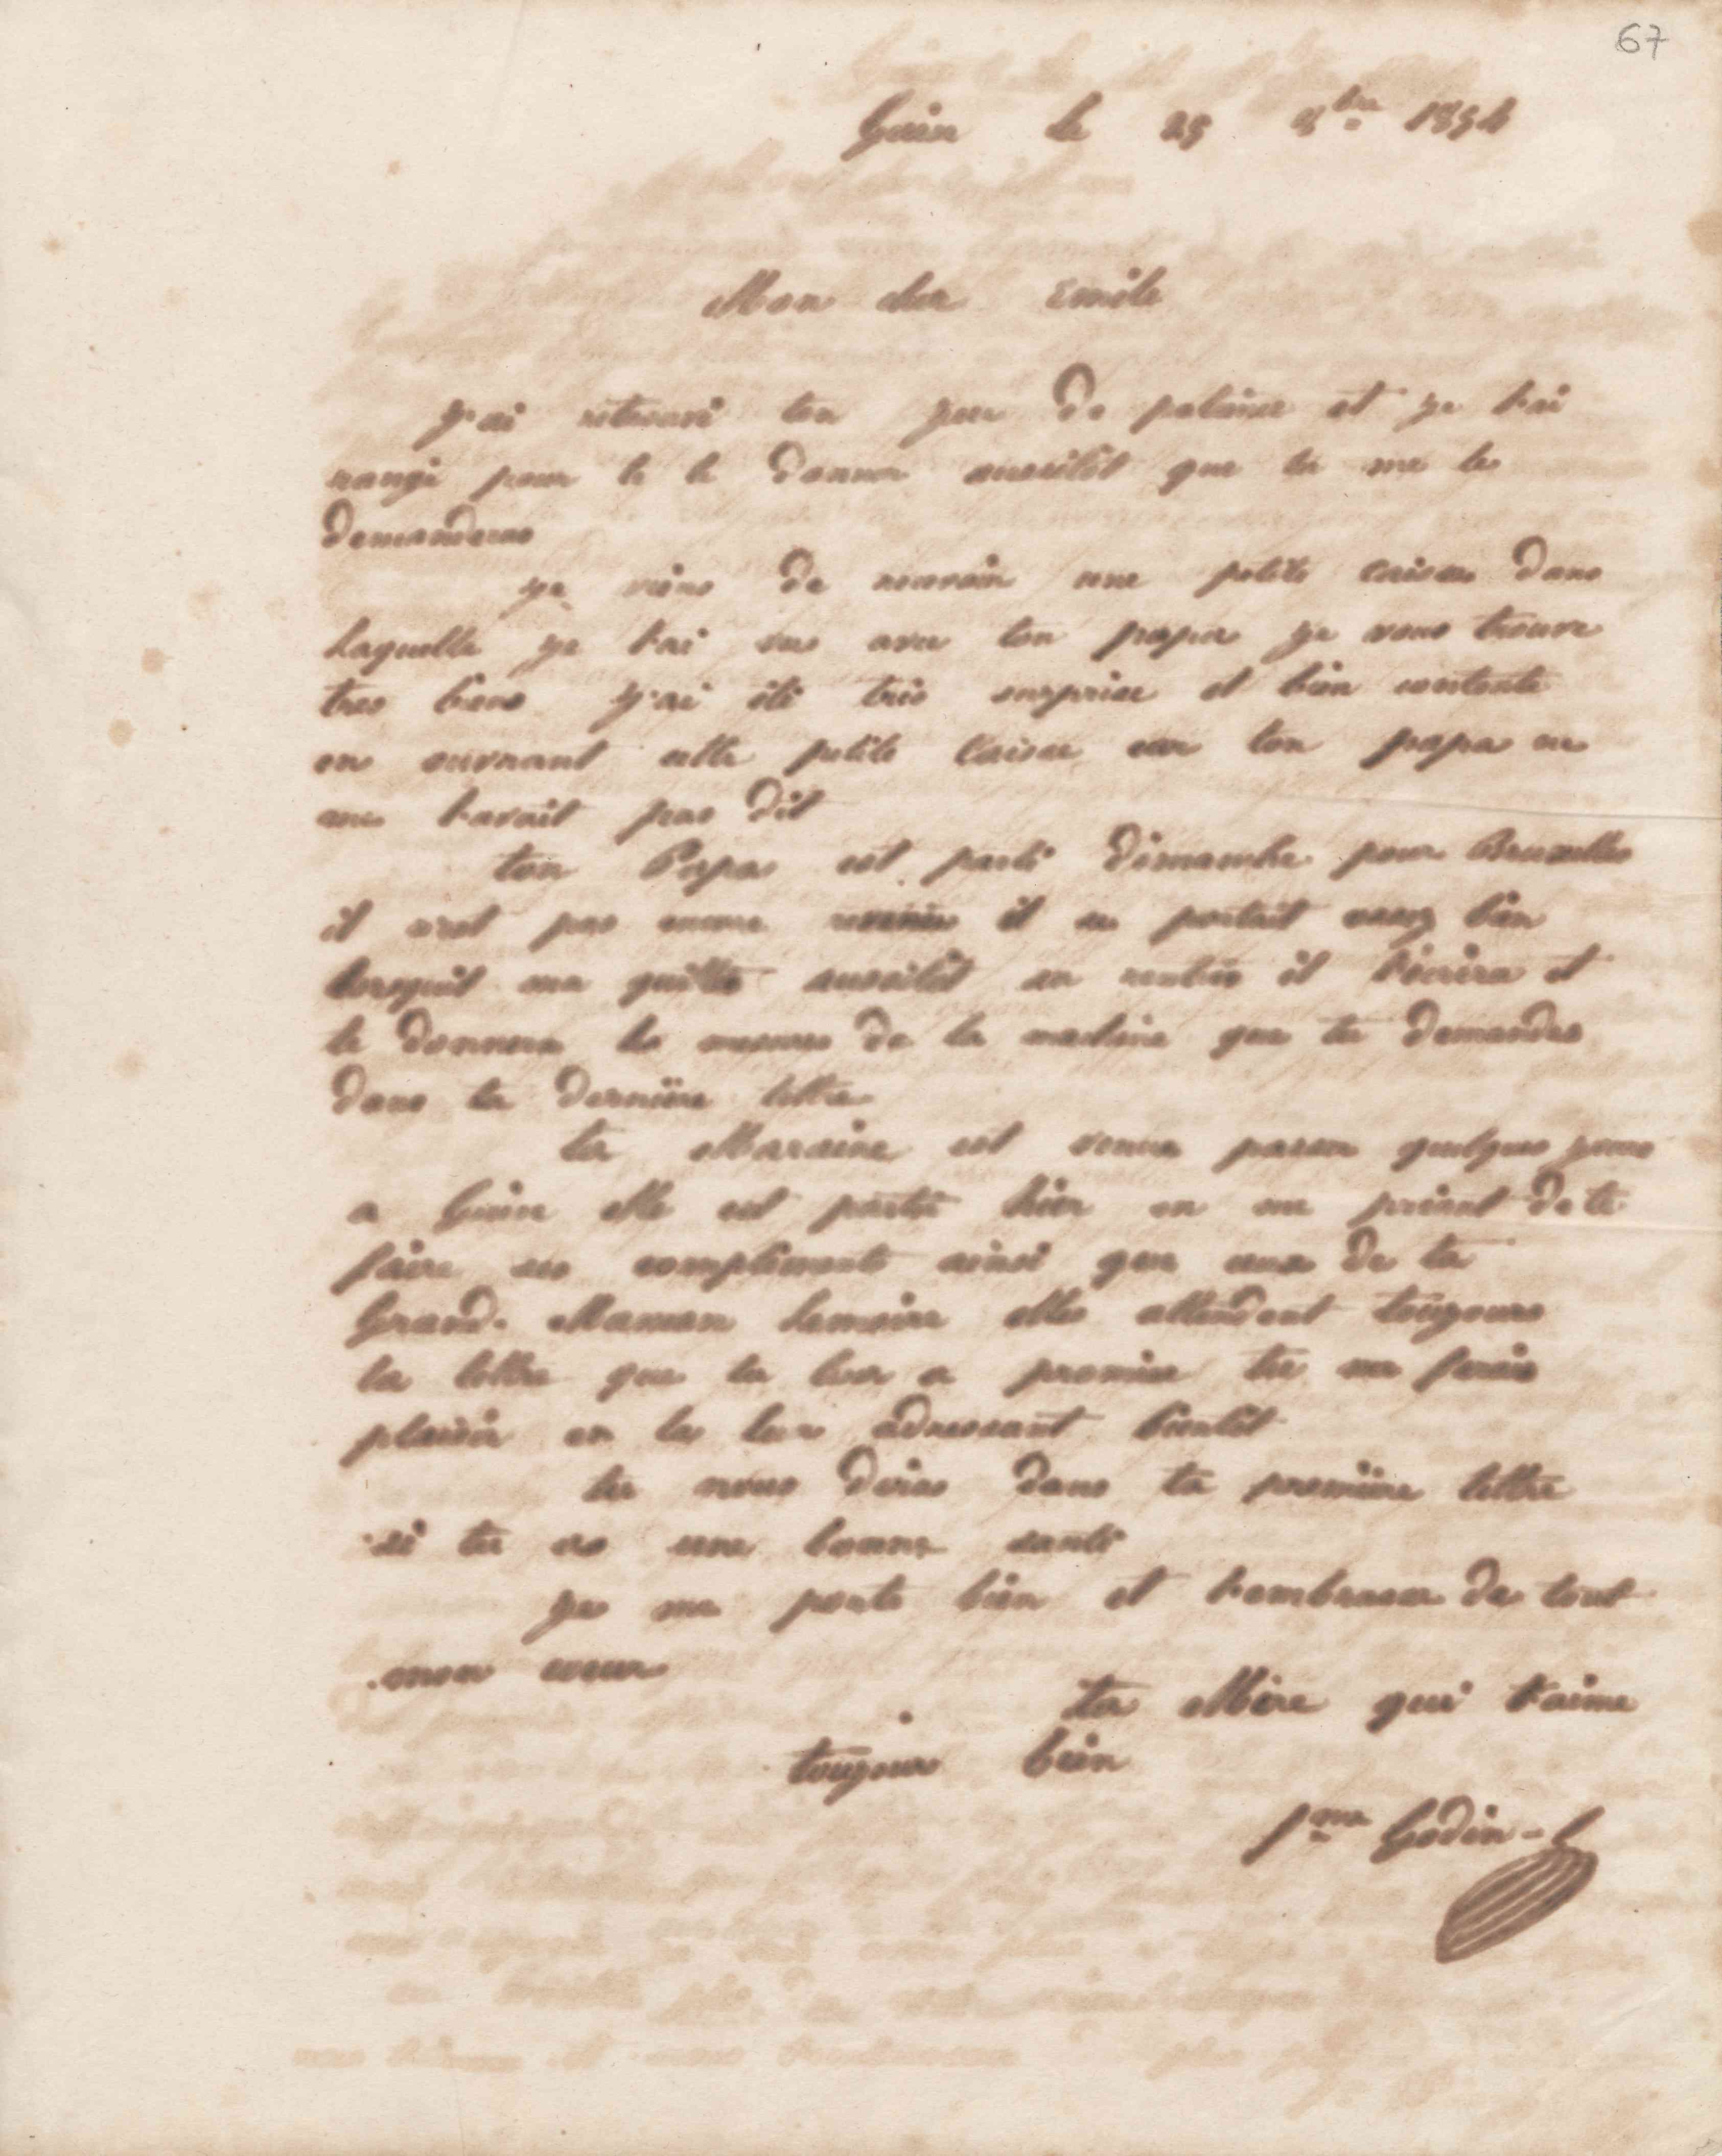 67
Guise le 25 8bre 1854
Mon cher Emile
j'ai retrouvé ton jeu de patience et je l'ai
rangé pour te le donner aussitôt que tu me le
demanderas
je viens de recevoir une petite caisse dans
laquelle je t'ai vu avec ton papa je vous trouve
tres biens j'ai été très surprise et bien contente
en ouvrant cette petite Caisse car ton papa ne
me l'avait pas dit
ton Papa est parti dimanche pour Bruxelles
il n'est pas encore revenu il se portait assez bien
lorsquil ma quitté aussitôt sa rentrée il t'écrira et
te donnera les mesures de la machine que tu demandes
dans ta dernière lettre
ta Maraine est venue passer quelques jours
a Guise elle est partie hier en me priant de te
faire ses compliments ainsi que ceux de ta
Grand. Maman Lemaire elles attendent toujours
la lettre que tu leur a promise tu me ferais
plaisir en la leur adressant bientôt
tu nous diras dans ta première lettre
si tu as une bonne santé
je me porte bien et t'embrasse de tout
mon coeur
ta Mère qui t'aime
toujours bien
fme Godin-L